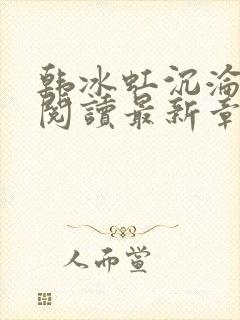 韩冰虹沉淪
閱讀最新章
人而萱